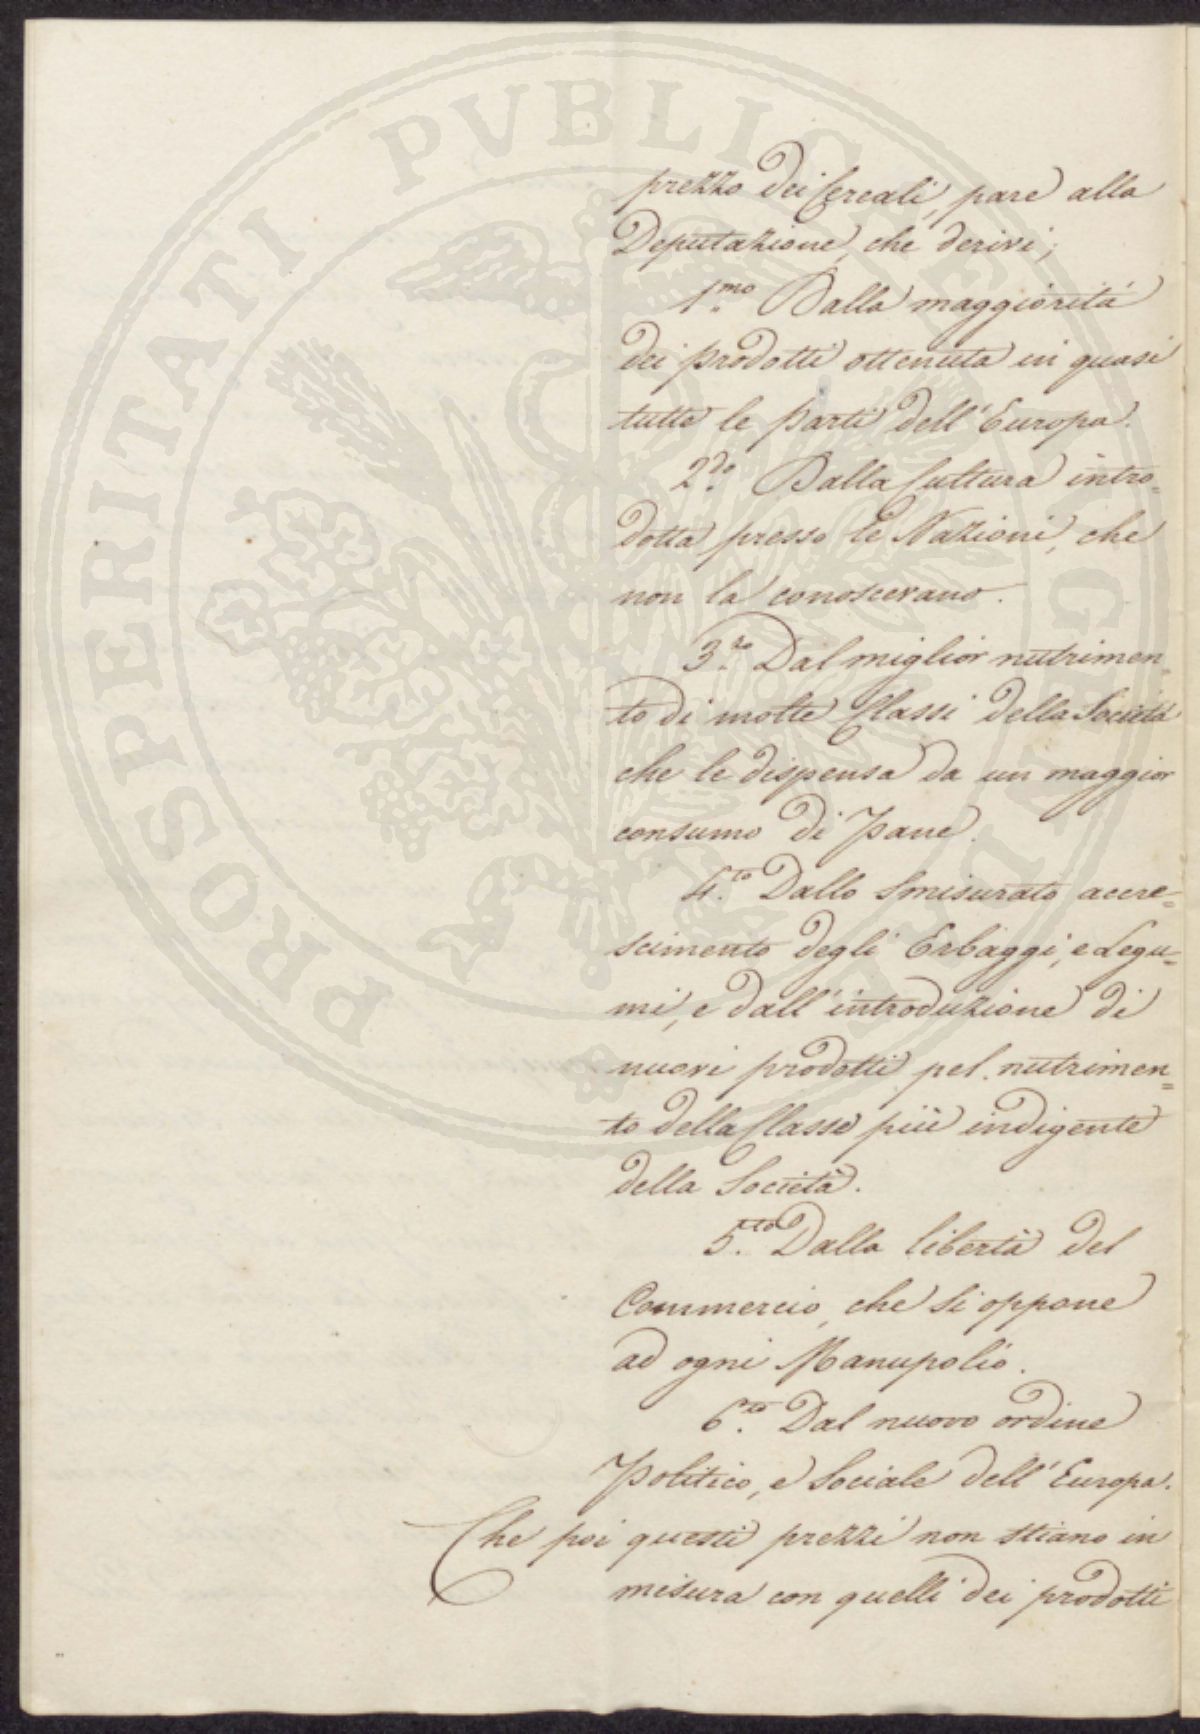 prezzo dei Cereali, pare alla
Deputazione, che derivi;
1.mo Dalla maggiorità
dei prodotti ottenuta in quasi
tutte le Parti dell'Europa.
2.do Dalla Cultura intro=
dotta presso le Nazioni, che
non la conoscevano.
3.zo Dal miglior nutrimen=
to di molte Classi della Società
che le dispensa da un maggior
consumo di Pane.
4.to Dallo Smisurato accre=
scimento degli Erbaggi, e Legu=
mi, e dall'introduzione di
nuovi prodotti pel nutrimen=
to della Classe più indigente
della Società.
5.to Dalla libertà del
Commercio, che si oppone
ad ogni Manupolio.
6.to Dal nuovo ordine
Politico, e Sociale dell'Europa.
Che poi questi prezzi non stiano in
misura con quelli dei prodotti
PROSPERITATI PVBLICAE AVGENDAE